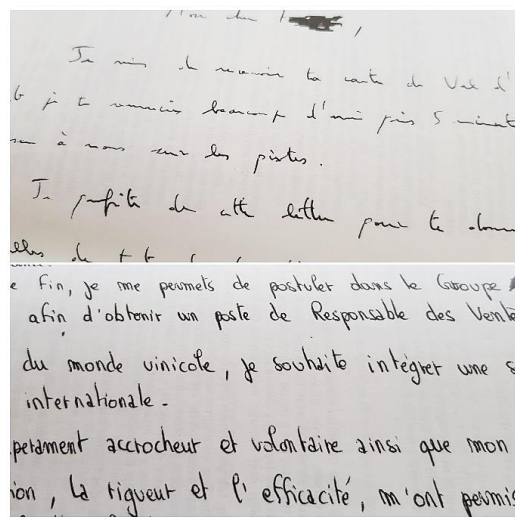 Mon cher
Je viens de recevoir ta carte de Val d'
je te remercie beaucoup d'avoir pris 5 minut
à nous sur les pistes.
Je profite de cette lettre pour te donn
e fin, je me permets de postuler dans le Groupe
afin d'obtenir un poste de Responsable des Vente
du monde vinicole, je souhaite intégrer une s
internationale.
pérament accrocheur et volontaire ainsi que mon
ion, la rigueur et l'efficacité, m'ont permis